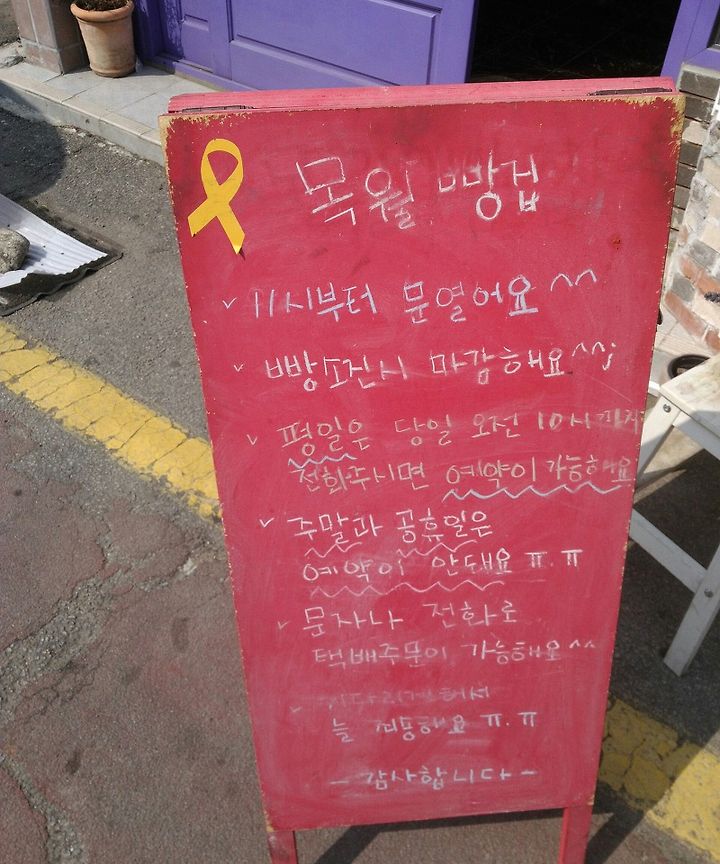 목월 빵집
11시부터 문열어요 ^^
빵소진시 마감해요^^;
평일은 당일 오전 10시까지
전화주시면 예약이 가능해요
주말과 공휴일은
예약이 안돼요 ㅠ.ㅠ
문자나 전화로
택배주문이 가능해요^^
기다리게해서
늘 죄송해요 ㅠ.ㅠ
- 감사합니다 -